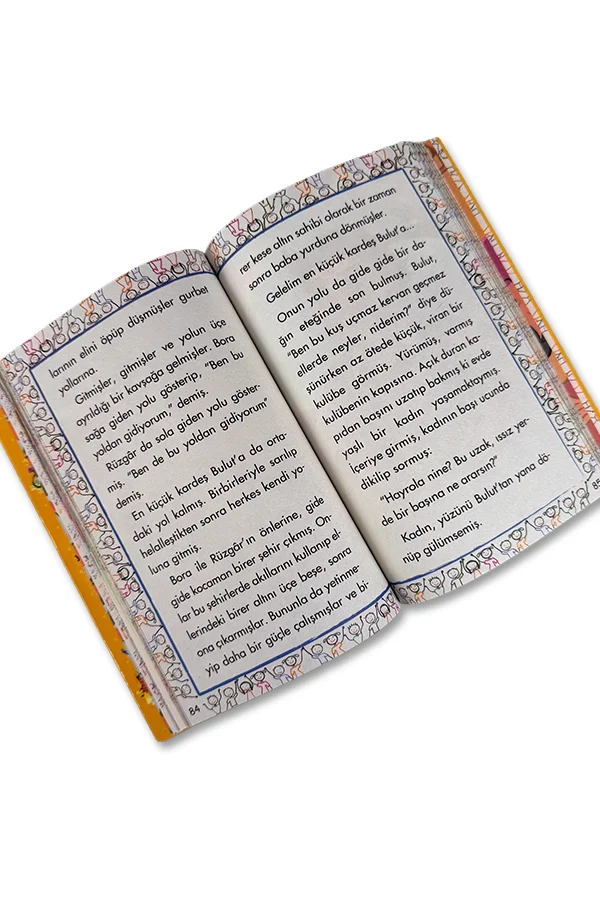 larının elini öpüp düşmüşler gurbet
yollarına.
Gitmişler, gitmişler ve yolun üçe
ayrıldığı bir kavşağa gelmişler. Bora
sağa giden yolu gösterip, "Ben bu
yoldan gidiyorum", demiş.
Rüzgâr da sola giden yolu göster-
miş. "Ben de bu yoldan gidiyorum"
demiş.
En küçük kardeş Bulut'a da orta-
daki yol kalmış. Birbirleriyle sarılıp
helalleştikten sonra herkes kendi yo-
luna gitmiş.
Bora ile Rüzgâr'ın önlerine, gide
gide kocaman birer şehir çıkmış. On-
lar bu şehirlerde akıllarını kullanıp el-
lerindeki birer altını üçe beşe, sonra
ona çıkarmışlar. Bununla da yetinme-
yip daha bir güçle çalışmışlar ve bi-
84
rer kese altın sahibi olarak bir zaman
sonra baba yurduna dönmüşler.
Gelelim en küçük kardeş Bulut'a...
Onun yolu da gide gide bir da-
ğın eteğinde son bulmuş. Bulut,
"Ben bu kuş uçmaz kervan geçmez
ellerde neyler, niderim?" diye dü-
şünürken az ötede küçük, viran bir
kulübe görmüş. Yürümüş, varmış
kulübenin kapısına. Açık duran ka-
pıdan başını uzatıp bakmış ki evde
yaşlı bir kadın yaşamaktaymış.
İçeriye girmiş, kadının başı ucunda
dikilip sormuş:
"Hayrola nine? Bu uzak, ıssız yer-
de bir başına ne ararsın?"
Kadın, yüzünü Bulut'tan yana dö-
nüp gülümsemiş.
85